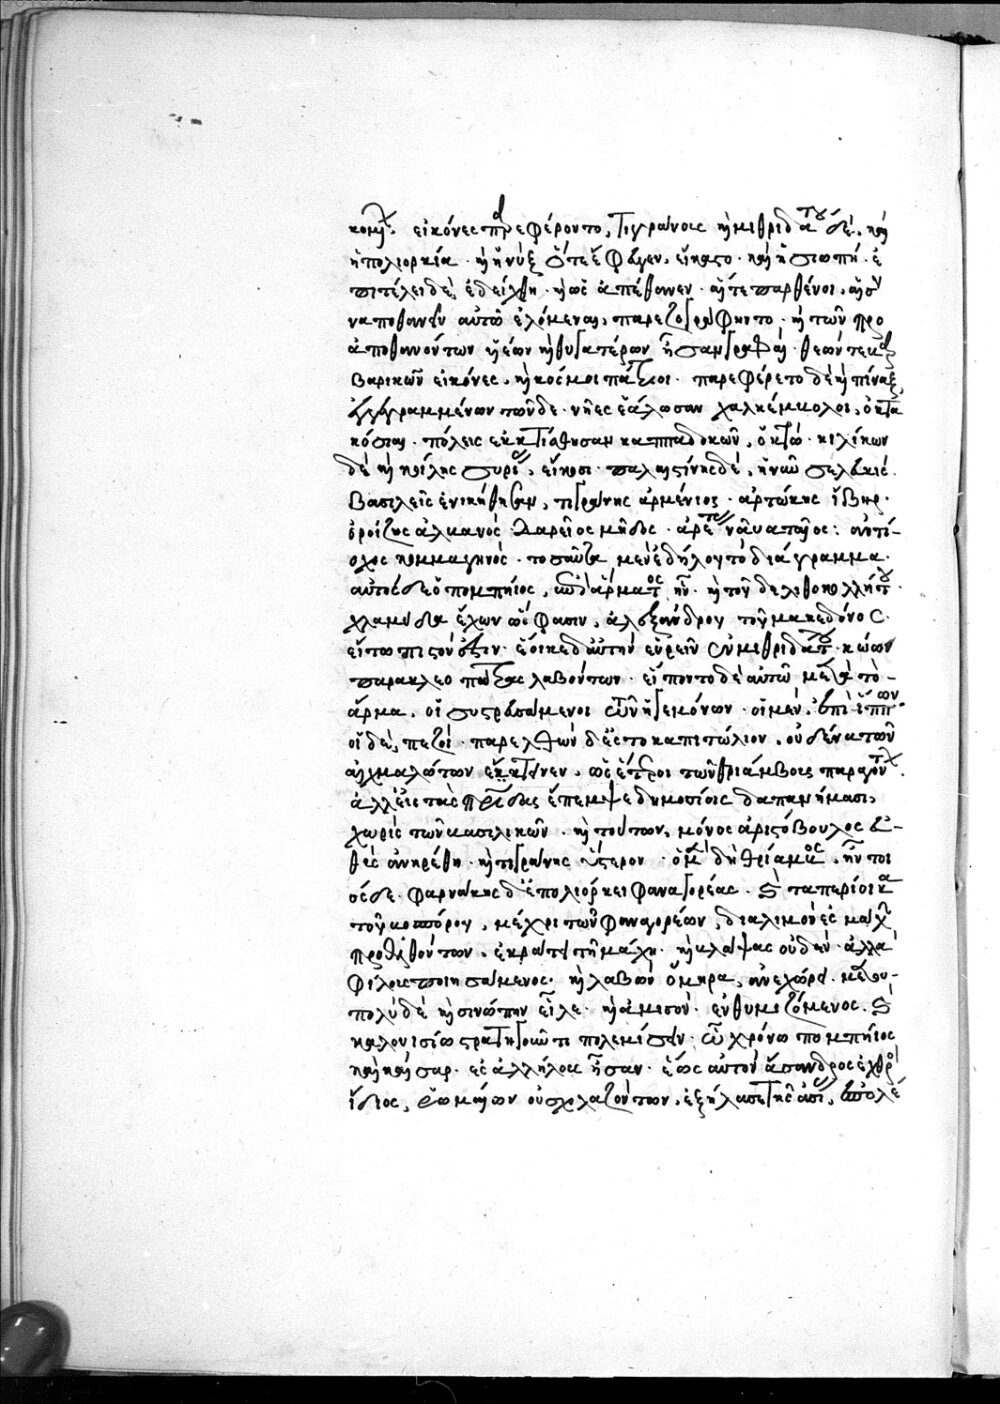 κομι. εἰκόνες παρεφέροντο, Τιγράνους καὶ μιθριδάτου δὲ. καὶ
ἡ πολιορκία. καὶ ἡ νὺξ ὅτε ἔφευγεν, εἴκαστο. καὶ ἡ σιωπή. ἐ
πὶ τέλει δὲ, ἐδείχθη. καὶ ὡς ἀπέθανεν. αἵ τε παρθένοι, αἱ συ
ναποθανεῖν αὐτῶ ἑλόμεναι, παρεζωγράφηντο. καὶ τῶν προ
ἀποθανόντων υἱέων καὶ θυγατέρων ἦσαν γραφαί. θεῶν τε βαρ
βαρικῶν εἰκόνες, καὶ κόσμοι πάτριοι. παρεφέρετο δὲ καὶ πίναξ,
ἐγγεγραμμένων τῶνδε. νῆες ἑάλωσαν χαλκέμβολοι, ὀκτα
κόσιαι. πόλεις ἐκτίσθησαν καππαδοκῶν, ὀκτώ. κιλίκων
δὲ καὶ κοίλης συρίας, εἴκοσι. παλαιστίνης δὲ, ἡ νῦν σελευκίς.
βασιλεῖς ἐνικήθησαν, τιγράνης ἀρμένιος. ἀρτώκης ἴβηρ.
ὀροίζης ἀλβανός. Δαρεῖος μῆδος. ἀρέτας ναβαταῖος: ἀντί-
οχος κομμαγηνός. τοσαῦτα μὲν ἐδήλου τὸ διάγραμμα.
αὐτὸς δὲ ὁ πομπήιος, ἐφ' ἅρματος ἦν. καὶ τοῦδε λιθοκολλήτου.
χλαμύδα ἔχων ὥς φασιν, ἀλεξάνδρου τοῦ μακεδόνος.
εἴ τω πιστόν ἐστιν. ἔοικε δ' αὐτὴν εὑρεῖν ἐν μιθριδάτου. κώων
παρὰ κλεοπάτρας λαβόντων. εἵποντο δὲ αὐτῶ μετὰ τὸ
ἅρμα. οἱ συστρατευσάμενοι τῶν ἡγεμόνων. οἱ μὲν, ἐπὶ ἵππων.
οἱ δὲ, πεζοί. παρελθὼν δ' ἐς τὸ καπιτώλιον. οὐδένα τῶν
αἰχμαλώτων ἔκτεινεν. ὡς ἕτεροι τῶν θριάμβους παραγόντων.
ἀλλ' εἰς τὰς πατρίδας ἔπεμψε δημοσίοις δαπανήμασι,
χωρὶς τῶν βασιλικῶν. καὶ τούτων, μόνος ἀριστόβουλος εὐ-
θὺς ἀνῃρέθη. καὶ τιγράνης ὕστερον. ὁ μὲν δὴ θρίαμβος, ἦν τοι
όσδε. φαρνάκης δ' ἐπολιόρκει φαναγορέας. καὶ τὰ περίοικα
τοῦ βοσπόρου, μέχρι τῶν φαναγορέων, διὰ λιμὸν ἐς μάχην
προελθόντων, ἐκράτει τῆ μάχη. καὶ βλάψας οὐδὲν. ἀλλὰ
φίλους ποιησάμενος. καὶ λαβὼν ὅμηρα, ἀνεχώρει. μετ' οὐ
πολὺ δὲ, καὶ σινώπην εἷλε. καὶ ἀμισὸν. ἐνθυμιζόμενος. καὶ
καλουισίω στρατηγοῦντι πολεμῆσαι. ὧ χρόνω πομπήιος
καὶ καῖσαρ. ἐς ἀλλήλους ἦσαν. ἕως αὐτὸν ἄσανδρος ἐχθρὸς
ἴδιος, ῥωμαίων οὐ σχολαζόντων, ἐξήλασε τῆς ἀσίας, ἐπολέ